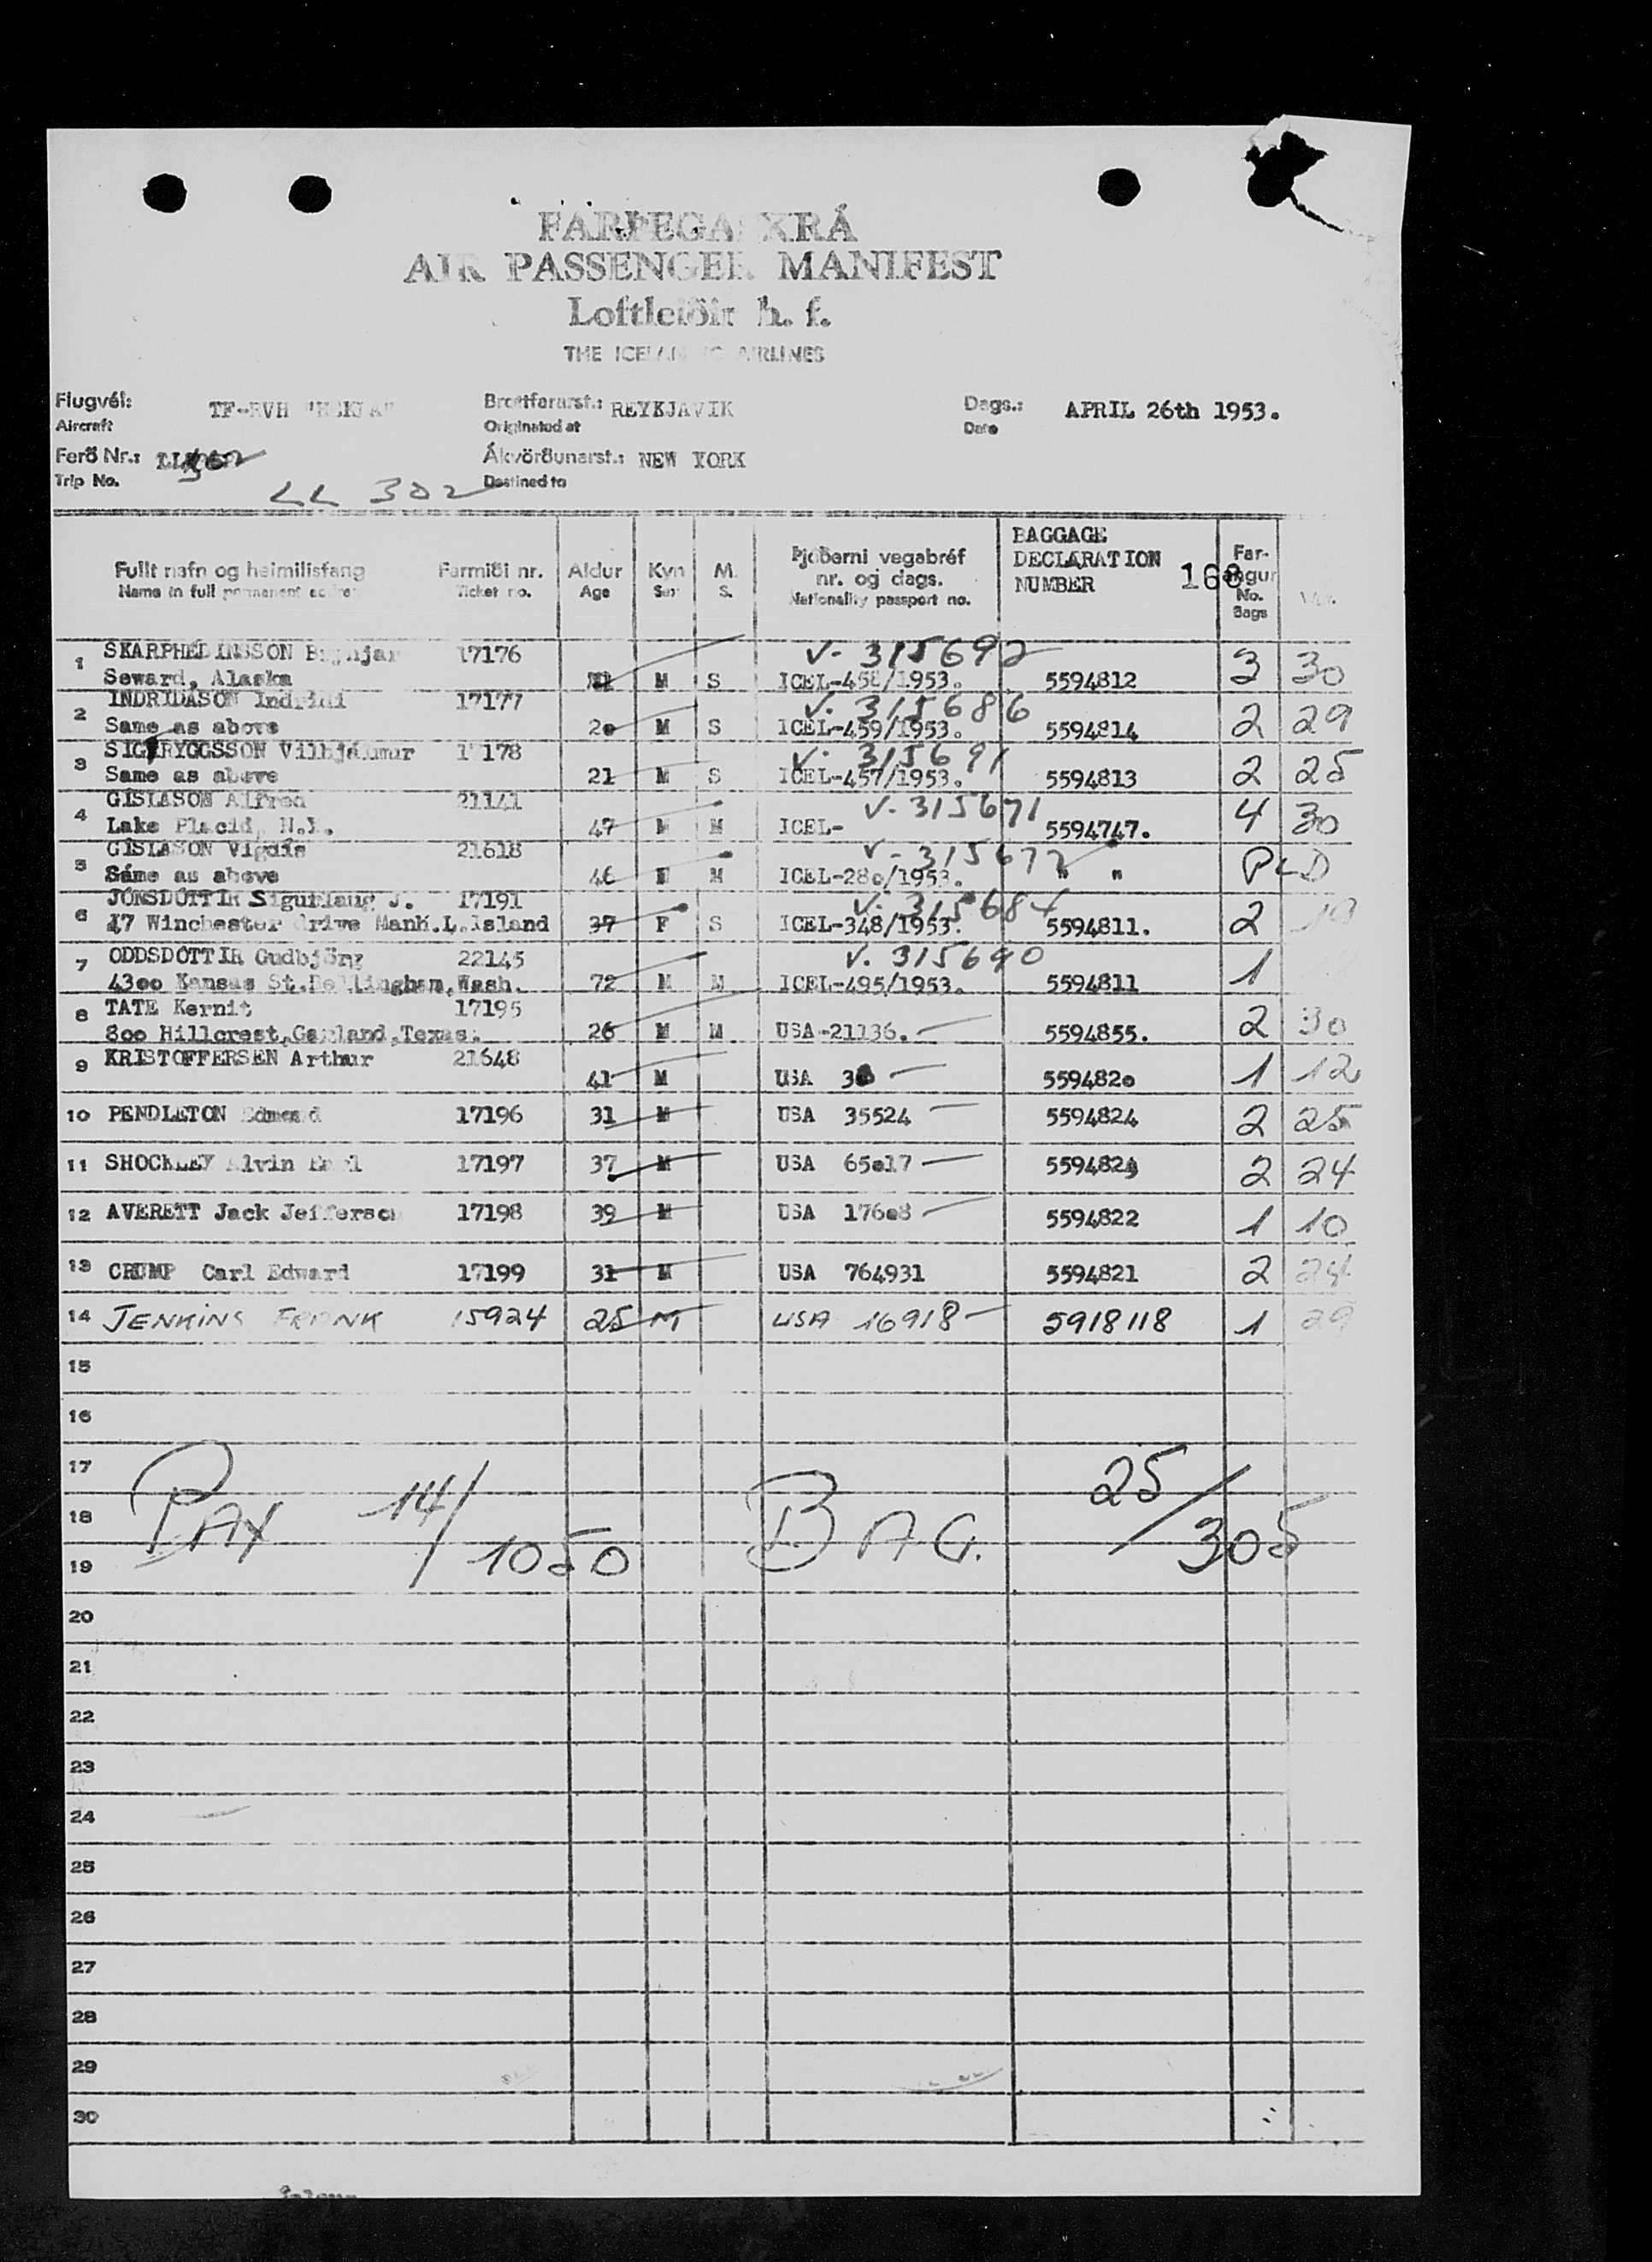 FARÞEGASKRÁ
AIR PASSENGER MANIFEST
Loftleiðir h. f.
THE ICELANDIC AIRLINES
Flugvél: TF-RVH "HEKLA" Brottfararst.: REYKJAVIK Dags.: APRIL 26th 1953.
Aircraft Originated at Date
Ferð Nr.: Ákvörðunarst.: NEW YORK
Trip No. LL 302 Destined to
Fullt nafn og heimilisfang Farmiði nr. Aldur Kyn M. Þjóðerni vegabréf nr. og dags. BAGGAGE DECLARATION NUMBER 168 Far-angur
Name in full permanent address Ticket no. Age Sex S. Nationality passport no. No. Bags
1 SKARPHÉDINSSON 17176 V- 315692
Seward, Alaska M S ICEL-458/1953. 5594812 3 30
2 INDRIDASON Indridi 17177 V. 315686
Same as above 2o M S ICEL-459/1953. 5594814 2 29
3 SIGTRYGGSSON Vilhjálmur 17178 V. 315691
Same as above 21 M S ICEL-457/1953. 5594813 2 25
4 GISLASON Alfred 21141 V-315671
Lake Placid, N.Y. 47 M M ICEL- 5594747. 4 30
5 GISLASON Vigdis 21618 V-315672
Same as above 46 M ICEL-28o/1953. " " PLD
6 JÓNSDÓTTIR Sigurlaug J. 17191 V. 315684
17 Winchester drive Manh.L.Island 37 F S ICEL-348/1953. 5594811. 2 19
7 ODDSDÓTTIR Gudbjörg 22145 V. 315690
43oo Kansas St.Bellingham,Wash. 72 M M ICEL-495/1953. 5594811 1
8 TATE Kernit 17195
8oo Hillcrest,Garland,Texas. 26 M M USA-21136. 5594855. 2 30
9 KRISTOFFERSEN Arthur 21648
41 M USA 559482o 1 12
10 PENDLETON Edmond 17196 31 M USA 35524 5594824 2 25
11 SHOCKLEY Alvin Earl 17197 37 M USA 65o17 2 24
12 AVERETT Jack Jefferson 17198 39 M USA 176o8 5594822 1 10
13 CRUMP Carl Edward 17199 31 M USA 764931 5594821 2 24
14 JENKINS FRANK 15924 25 M USA 16918 5918118 1 29
15
16
17
18 PAX 14/1050 BAG. 25/305
19
20
21
22
23
24
25
26
27
28
29
30